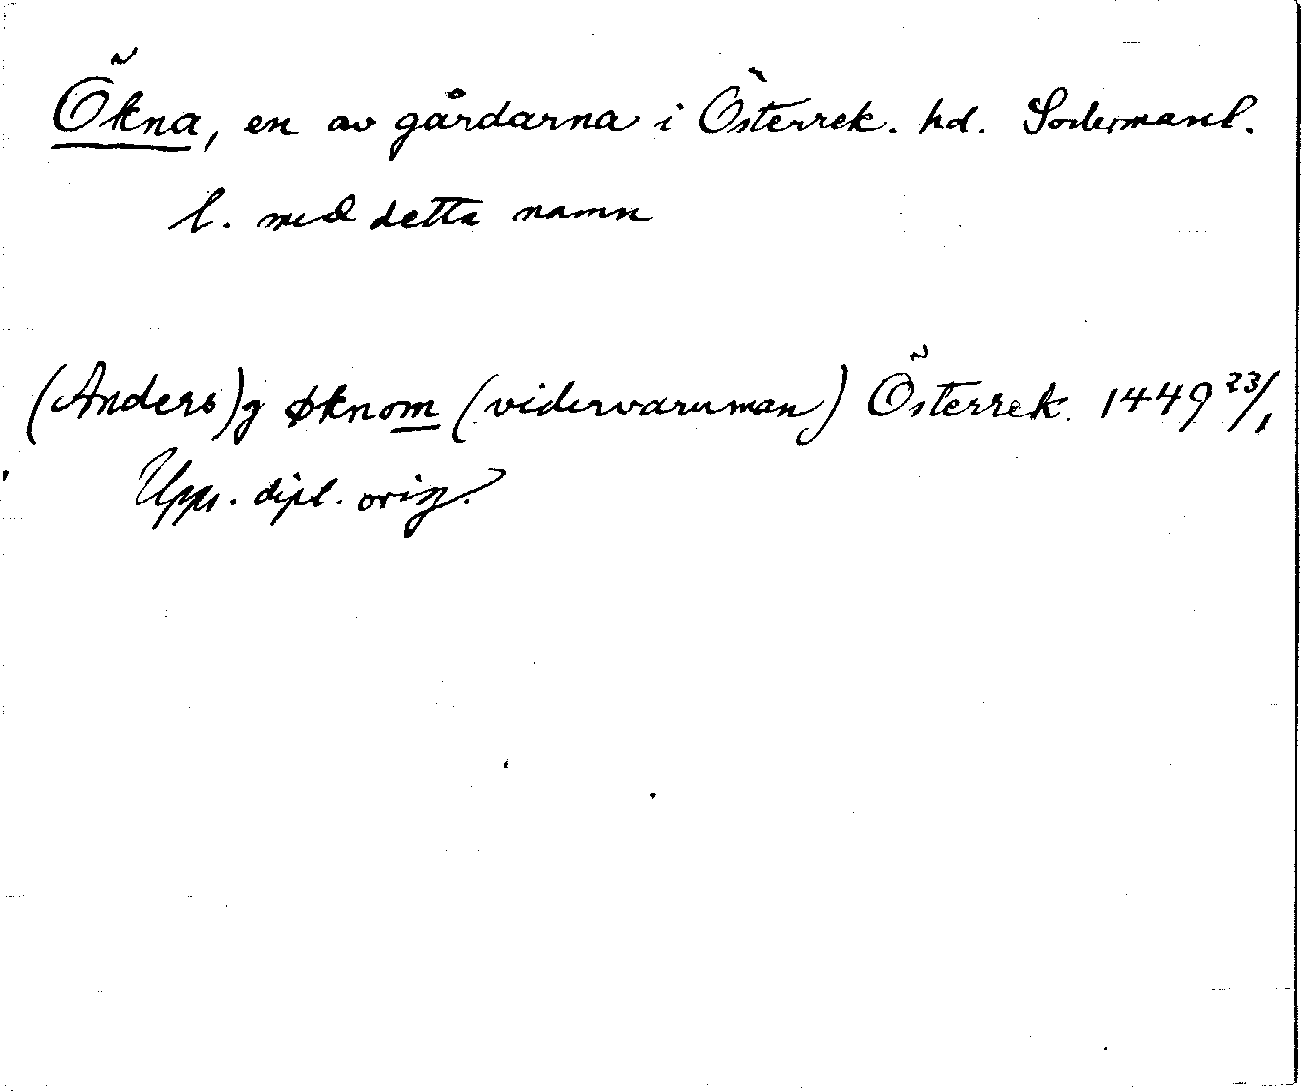 Ökna, en av gårdarna i Österrek. hd. Södermanl.
l. med detta namn
(Anders) g øknom (vidervaruman) Österrek. 1449 23/1
Upps. dipl. orig.